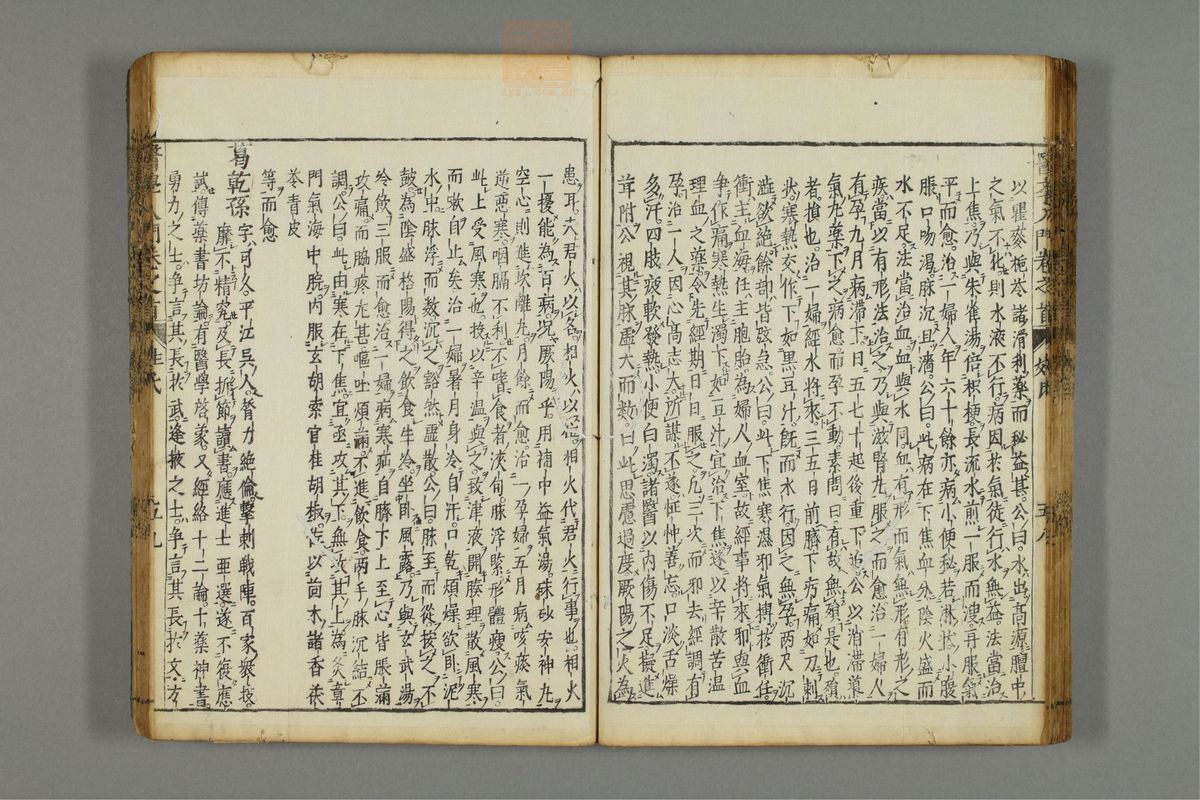 以瞿麥梔苓諸滑利藥而秘益甚公曰水出高源膻中
之氣不化則水液不行病因於氣徒行水無益法當治
上焦乃與朱雀湯倍桔梗長流水煎一服而溲再服氣
平而愈治一婦人年六十餘亦病小便秘若淋狀小腹
脹口吻渴脉沉且濇公曰此病在下焦血分陰火盛而
水不足法當治血血與水同血有形而氣無形有形之
疾當以有形法治之乃與滋腎丸服之而愈治一婦人
有孕九月病滯下日五七十起後重下迫公以消滯導
氣丸藥下之病愈而孕不動素問曰有故無殞是也殞
者損也治一婦經水將來三五日前臍下㽲痛如刀刺
狀寒熱交作下如黑豆汁旣而水行因之無孕兩尺沉
澁欲絕餘部皆弦急公曰此下焦寒濕邪氣搏於衝任
衝主血海任主胞胎為婦人血室故經事將來邪與血
爭作痛寒熱生濁下如豆汁宜治下焦遂以辛散苦温
理血之藥令先經期日日服之凡三次而邪去經調有
孕治一人因心高志大所謀不遂怔忡善忘口淡舌燥
多汗四肢疲軟發熱小便白濁諸醫以内傷不足擬進
茸附公視其脉虚大而数曰此思慮過度厥陽之火為
醫學入門卷之首 姓氏 五八
患耳夫君火以名相火以位相火代君火行事也相火
一擾能為百病况厥陽乎用補中益氣湯硃砂安神丸
空心則進坎離丸月餘而愈治一孕婦五月病咳痰氣
逆惡寒咽膈不利不嗜食者浹旬脉浮緊形體瘦公曰
此上受風寒也投以辛温與之致津液開腠理散風寒
而嗽自止矣治一婦暑月身冷自汗口乾煩燥欲臥泥
水中脉浮而数沉之豁然虚散公曰脉至而從按之不
鼓為陰盛格陽得之飲食生冷坐臥風露乃與玄武湯
冷飲三服而愈治一婦病寒疝自臍下上至心皆脹滿
攻痛而脇疼尤甚嘔吐煩滿不進飲食两手脉沉結不
調公曰此由寒在下焦宜亟攻其下無攻其上為灸章
門氣海中脘内服玄胡索官桂胡椒佐以茴木諸香茯
苓青皮
等而愈
葛乾孫字可久平江吳人膂力絶倫擊刺戦陣百家衆技
靡不精究及長折節讀書應進士亜選遂不復應
試傳藥書坊論有醫學啓蒙又經絡十二論十藥神書
勇力之士爭言其長於武逢掖之士爭言其長於文方
醫學入門卷之首 姓氏 五九